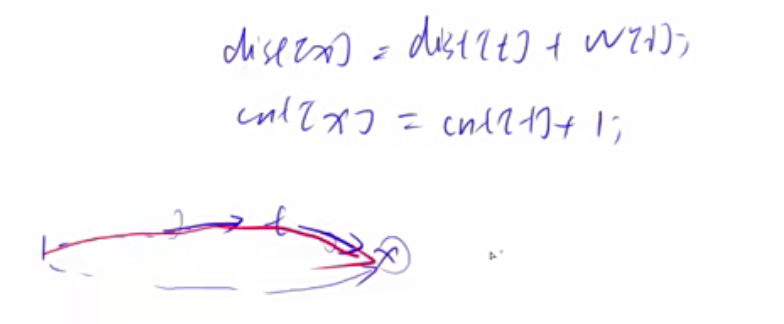 dist[x] = dist[t] + w[i];
cnt[x] = cnt[t] + 1;
1 t x